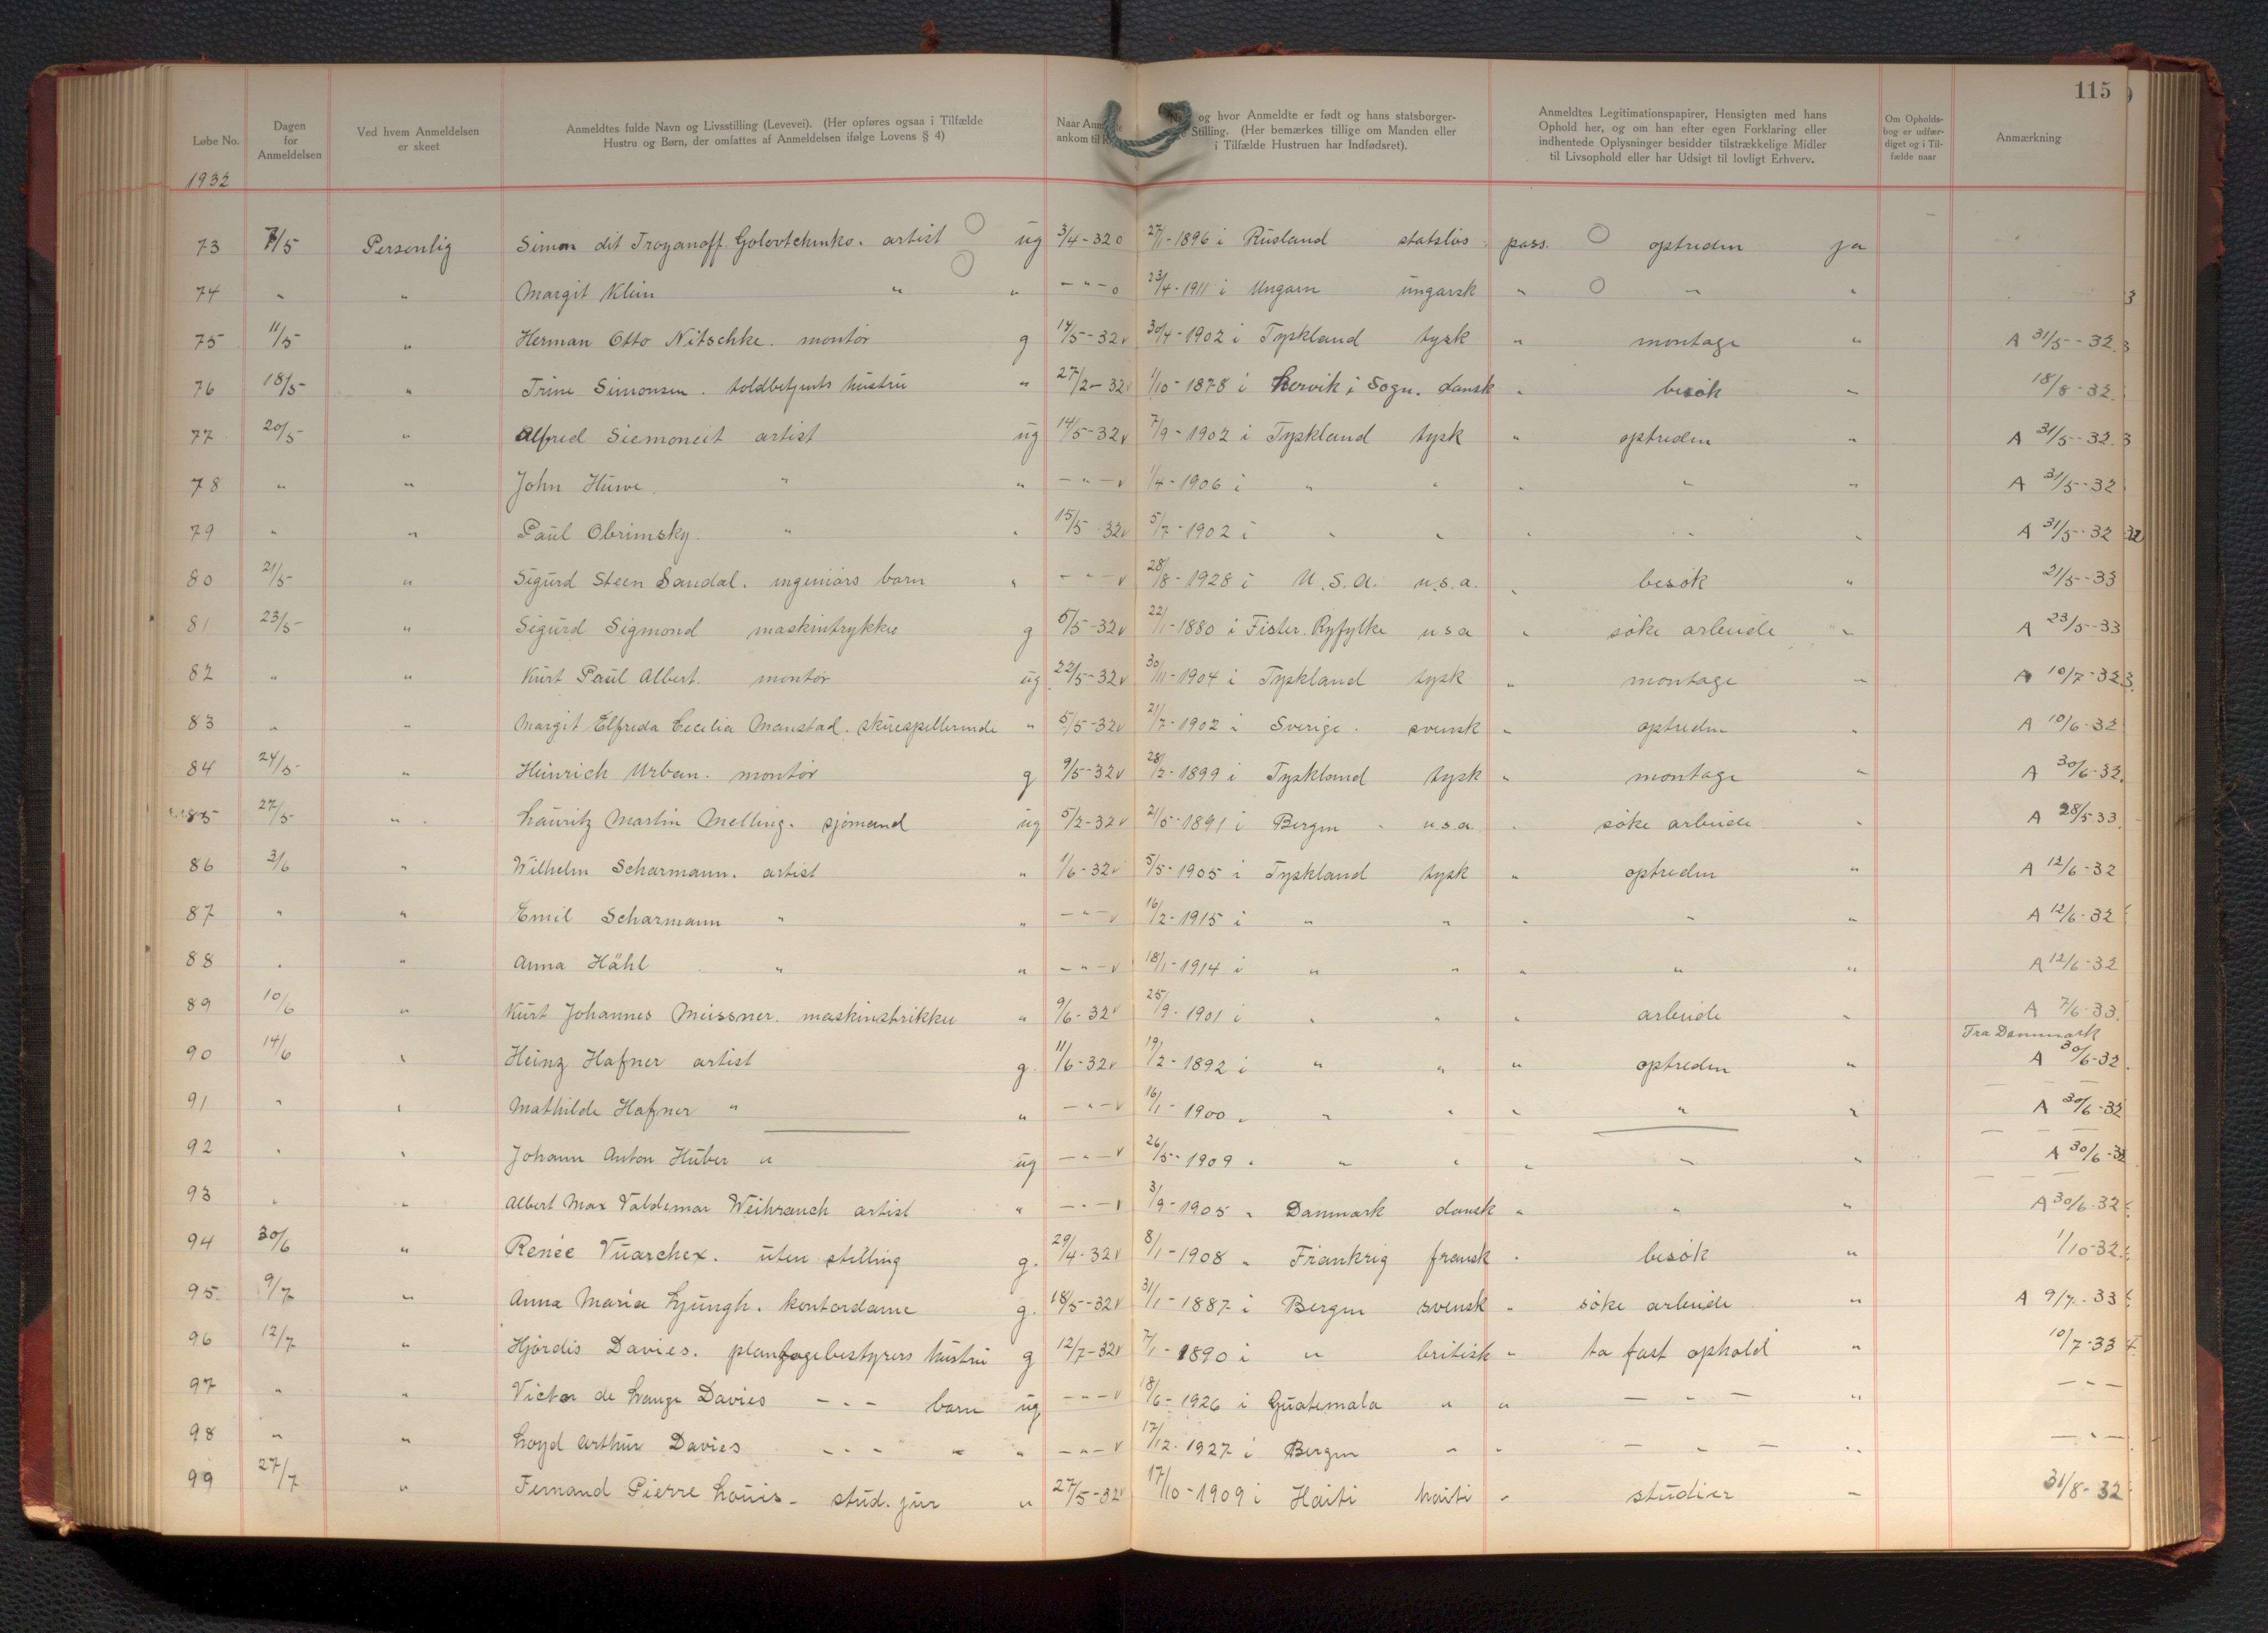 115
Løbe No.
Dagen for Anmeldelsen
Ved hvem Anmeldelsen er skeet
Anmeldtes fulde Navn og Livsstilling (Levevei). (Her opføres ogsaa i Tilfælde Hustru og Børn, der omfattes af Anmeldelsen ifølge Lovens § 4)
Naar ankom til
og hvor Anmeldte er født og hans statsborger- Stilling. (Her bemærkes tillige om Manden eller i Tilfælde Hustruen har Indfødsret).
Anmeldtes Legitimationspapirer, Hensigten med hans Ophold her, og om han efter egen Forklaring eller indhentede Oplysninger besidder tilstrækkelige Midler til Livsophold eller har Udsigt til lovligt Erhverv.
Om Opholds- bog er udfær- diget og i Til- fælde naar
Anmærkning
1932
73 7/5 Personlig Simon dit Troyanoff Golovtchinko. artist ug 3/4-32 o 27/1-1896 i Rusland statsløs pass. optreden ja
74 " " Margit Klein " " - " - o 23/4-1911 i Ungarn ungarsk " " "
75 11/5 " Herman Otto Nitschke. montør g 14/5-32 v 30/4-1902 i Tyskland tysk " montage " A 31/5-32
76 18/5- " Trine Simonsen. toldbetjents hustru " 27/2-32 1/10-1878 i Lervik i Sogn. dansk " besøk " 18/8-32.
77 20/5 " Alfred Siemoneit artist ug 14/5-32 v 7/9-1902 i Tyskland tysk " optreden " A 31/5-32.
78 " " John Huwe. " " - " - v 1/4-1906 i " " " " " A 31/5-32
79 " " Paul Obrimsky. " " 15/5-32 v 5/7-1902 i " " " " " A 31/5-32
80 21/5- " Sigurd Steen Sandal. ingeniørs barn " - " - v 28/8-1928 i U.S.A. u.s.a. " besøk " 21/5-33
81 23/5- " Sigurd Sigmond maskintrykker g 5/5-32 v 22/1-1880 i Fister. Ryfylke u s a " søke arbeide " A 23/5-33
82 " " Kurt Paul Albert. montør ug 22/5-32 v 30/11-1904 i Tyskland tysk " montage " A 10/7-32
83 " " Margit Elfreda Cecilia Manstad. skuespellerinde " 5/5-32 v 21/7-1902 i Sverige. svensk " optreden " A 10/6-32
84 24/5- " Heinrich Urban. montør g 9/5-32 v 28/2-1899 i Tyskland tysk " montage " A 30/6-32.
85 27/5- " Lauritz Martin Melling. sjømand ug 5/2-32 v 2/5-1891 i Bergen u.s.a. " søke arbeide " A 28/5 33.
86 3/6 " Wilhelm Scharmann. artist " 1/6-32 v 5/5-1905 i Tyskland tysk " optreden " A 12/6-32
87 " " Emil Scharmann " " - " - v 16/2-1915 i " " " " " A 12/6-32
88 " " Anna Hähl " " - " - v 18/1-1914 i " " " " " A 12/6-32
89 10/6 " Kurt Johannes Meissner. maskinstrikker " 9/6-32 v 25/9-1901 i " " " arbeide " A 7/6-33.
Fra Danmark
90 14/6 " Heinz Hafner artist g. 11/6-32 v 19/2-1892 i " " " optreden " A 30/6-32.
91 " " Mathilde Hafner " " - " - v 16/1-1900 " " " " " " A 30/6-32
92 " " Johann Anton Huber " ug - " - v 26/5-1909 " " " " " " A 30/6-32
93 " " Albert Max Valdemar Weihrauch artist " - " - v 3/9-1905 " Danmark dansk " " " A 30/6-32
94 30/6 " Renée Vuarchex. uten stilling g. 29/4-32 v 8/1-1908 " Frankrig fransk " besøk " 1/10-32.
95. 9/7 " Anna Maria Ljungh. kontordame g. 18/5-32 v 31/1-1887 i Bergen svensk " søke arbeide " A 9/7-33
96 12/7 " Hjørdis Davies. plantagebestyrers hustru g 12/7-32 v 7/1-1890 i " britisk " ta fast ophold " 10/7-33
97 " " Victor de Lange Davies - " - barn ug - " - v 18/6-1926 i Guatemala " " - " - " - " -
98 " " Loyd Arthur Davies - " - " " - " - v 17/12-1927 i Bergen " " - " - " - " -
99 27/7 " Fernand Pierre Louis- stud. jur " 27/5-32 v 17/10-1909 i Haiti haiti " studier " 31/8-32